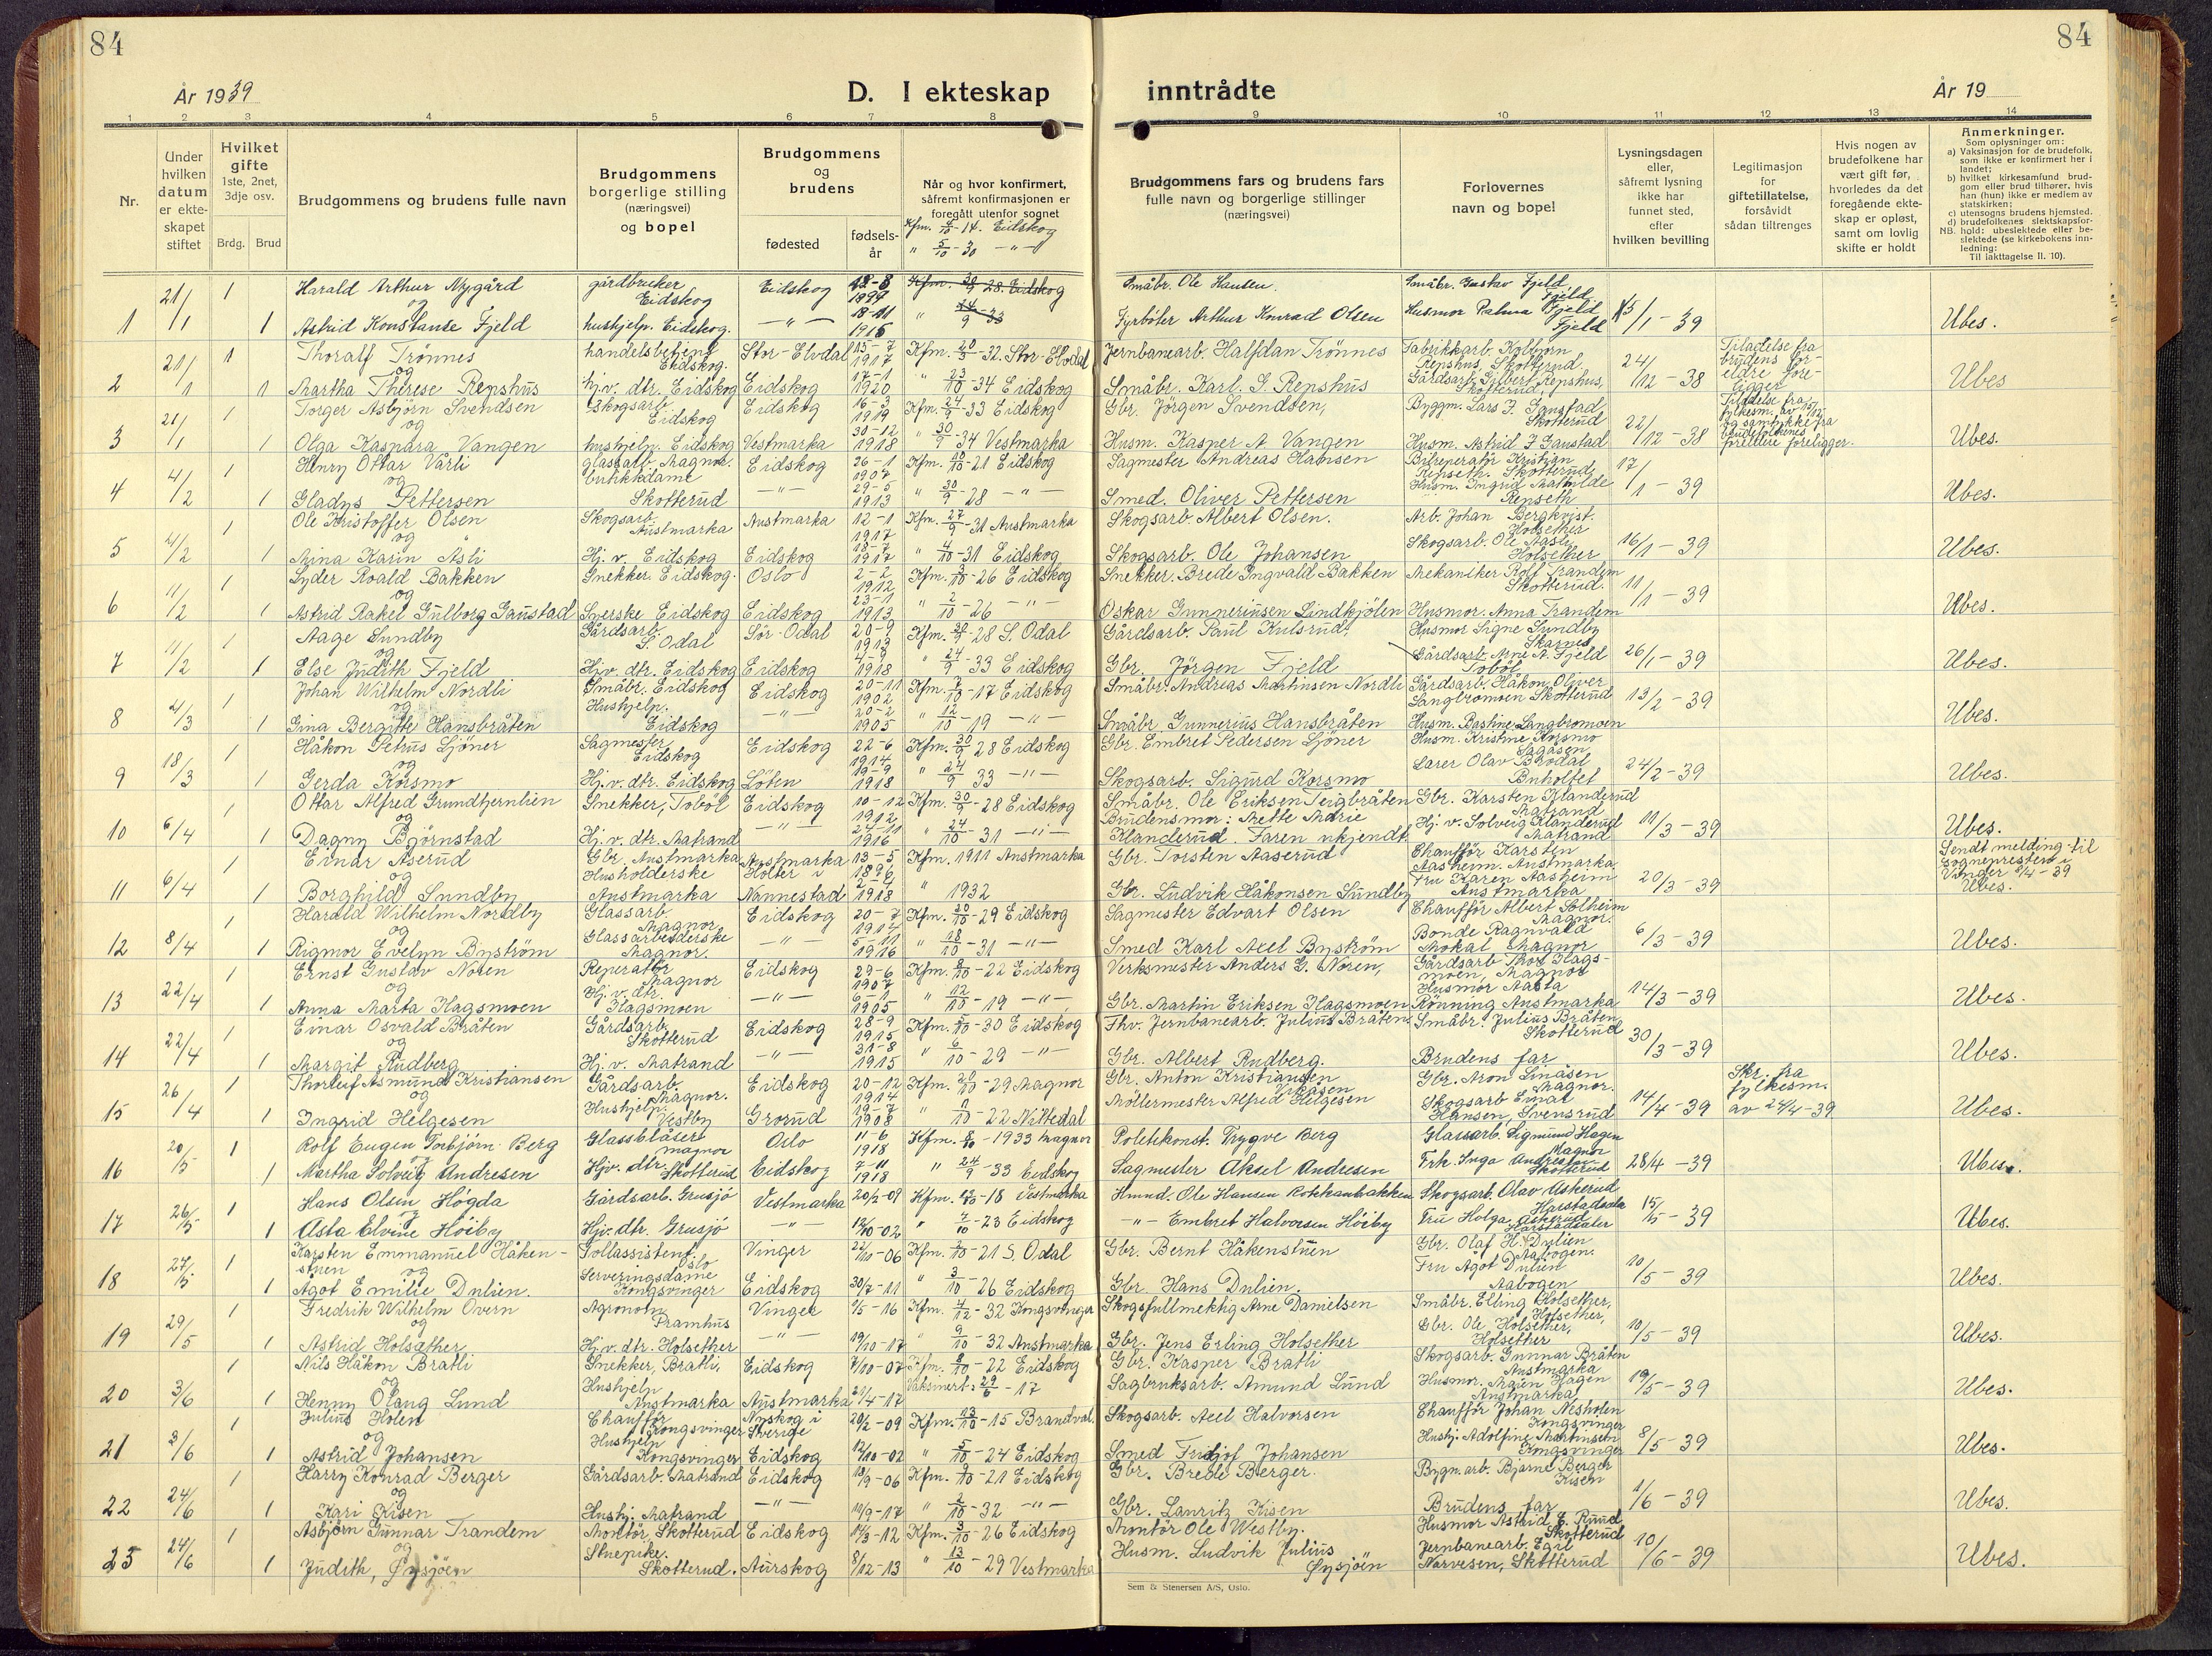 84
84
År 1939
D. I ekteskap inntrådte
År 19
1 2 3 4 5 6 7 8 9 10 11 12 13 14
Nr.
Under hvilken datum er ekteskapet stiftet
Hvilket gifte 1ste, 2net, 3dje osv.
Brdg. Brud
Brudgommens og brudens fulle navn
Brudgommens borgerlige stilling (næringsvei) og bopel
Brudgommens og brudens
fødested
fødselsår
Når og hvor konfirmert, såfremt konfirmasjonen er foregått utenfor sognet
Kfm. 4/10-14. Eidskog
" 5/10-30 -"-
Brudgommens fars og brudens fars fulle navn og borgerlige stillinger (næringsvei)
Forlovernes navn og bopel
Lysningsdagen eller, såfremt lysning ikke har funnet sted, efter hvilken bevilling
Legitimasjon for giftetillatelse, forsåvidt sådan tiltrenges
Hvis nogen av brudefolkene har vært gift før, hvorledes da det foregående ekteskap er opløst, samt om lovlig skifte er holdt
Anmerkninger.
Som oplysninger om:
a) Vaksinasjon for de brudefolk, som ikke er konfirmert her i landet;
b) hvilket kirkesamfund brudgom eller brud tilhører, hvis han (hun) ikke er medlem av statskirken;
c) utensogns brudens hjemsted.
d) brudefolkenes slektskapsforhold: ubeslektede eller beslektede (se kirkebokens innledning:
NB.
Til iakttagelse II. 10).
1 21/1 1 Harald Arthur Nygård gårdbruker Eidskog Eidskog 1899 Småbr. Ole Hansen. Småbr. Gustav Fjeld Fjeld
og
1 Astrid Konstanse Fjeld hushjelp. Eidskog. -"- 18-11 1915 Fyrbøter Arthur Konrad Olsen Husmor Palma Fjeld Fjeld 5/1-39 Ubes.
2 21/1 1 Thoralf Trönnes handelsbetjent Eidskog. Stor-Elvdal 15-7 1917 Kfm. 20/5-32. Stor-Elvdal Jernbanearb. Halfdan Trönnes Fabrikkarb. Kolbjørn Repshus, Skotterud. 24/12-38 Tiladelse fra brudens foreldre foreligger
og
1 Martha Therese Repshus hj.v. dtr. Eidskog Eidskog 17-1 1920 " 23/10-34 Eidskog Småbr. Karl. G. Repshus Gårdsarb. Gilbert Repshus, Skotterud Ubes
3 21/1 1 Torger Asbjörn Svendsen Skogsarb. Eidskog Eidskog 16-3 1919 Kfm. 24/9-33 Eidskog Gbr. Jörgen Svendsen, Byggm. Lars J. Gaustad Skotterud 22/12-38
og
1 Olga Kaspara Vangen hushjelp. Eidskog Vestmarka 30-12 1918 " 30/9-34 Vestmarka Husm. Kasper A. Vangen Husm. Astrid J. Gaustad Ubes.
4 4/2 1 Henry Ottar Vårli glassarb. Magnor. Eidskog 26-1 1907 Kfm. 10/10-21 Eidskog Sagmester Andreas Hansen Bilreperatör Kristian Repseth. Skotterud 17/1-39
og
1 Gladys Pettersen butikkdame Skotterud -"- 29-5 1913 " 30/9-28 -"- Smed. Oliver Pettersen Husm. Ingrid Mathilde Repseth Ubes.
5 4/2 1 Ole Kristoffer Olsen Skogsarb. Austmarka Austmarka 12-1 1917 Kfm. 27/9-31 Austmarka Skogsarb. Albert Olsen. Arb. Johan Bergkvist. Holsether 16/1-39
og
1 Mina Karin Åsli Hj. v. Eidskog Eidskog 18-7 1917 " 4/10-31 Eidskog Skogsarb. Ole Johansen Skogsarb. Ole Aasli Holsether Ubes.
6 11/2 1 Lyder Roald Bakken Snekker. Eidskog. Oslo 2-2 1912 Kfm. 3/10-26 Eidskog Snekker. Brede Ingvald Bakken Mekaniker Rolf Trandem Skotterud. 11/1-39
og
1 Astrid Rakel Gulborg Gaustad Syerske Eidskog Eidskog 23-1 1913 " 2/10-26 -"- Oskar Gunneriusen Lindkjölen Husmor. Anna Trandem Ubes.
7 11/2 1 Aage Sundby Gårdsarb. S. Odal Sör-Odal 20-9 1913 Kfm. 30/9-28 S. Odal Gårdsarb. Paul Kulsrud, Husmor Signe Sundby Skarnes 26/1-39
og
1 Else Judith Fjeld Hjv. dtr. Eidskog Eidskog 1918 " 24/9-33 Eidskog Gbr. Jörgen Fjeld Gårdsarb. Arne A. Fjeld Toböl Ubes.
8 4/3 1 Johan Wilhelm Nordli Småbr. Eidskog Eidskog 20-11 1902 Kfm. 7/10-17 Eidskog Småbr. Andreas Martinsen Nordli Gårdsarb. Håkon Oliver Langbromoen Skotterud 13/2-39
og
1 Gina Bergitte Hansbråten Hushjelp. Eidskog -"- 20-2 1905 " 12/10-19 -"- Småbr. Gunnerius Hansbråten Husm. Pastine Langbromoen Ubes.
9 18/3 1 Håkon Petrus Sjöner Sagmester Eidskog Eidskog 22-6 1914 Kfm. 30/9 28 Eidskog Gbr. Embret Pedersen Sjöner Husm. Kristine Korsmo Sagåsen 24/2-39
og
1 Gerda Korsmo Hj.v. dtr. Eidskog Löten 19-9 1918 " 24/9 33 -"- Skogsarb. Sigurd Korsmo Lærer Olav Bårdal Buholtet Ubes.
10 6/4 1 Ottar Alfred Grundtjernlien Snekker, Toböl Eidskog 10-12 1912 Kfm. 30/9-28 Eidskog Småbr. Ole Eriksen Teigbråten Gbr. Karsten Klanderud Matrand 11/3-39
og
1 Dagny Björnstad Hj. v. dtr. Matrand -"- 24-11 1916 " 24/10-31 -"- Brudensmor: Mette Marie Klanderud. Faren ukjendt. Hj. v. Solveig Klanderud Matrand Ubes.
11 6/4 1 Einar Aserud Gbr. Austmarka Austmarka 13-5 1896 Kfm. 1911 Austmarka Gbr. Torsten Aaserud Chaufför Karsten Aasheim Austmarka 20/3-39 Sendt melding til Sogneprest i Vinger 8/4-39
og
1 Borghild Sundby Husholderske Austmarka Holter i Nannestad 1918 " 1932 Gbr. Ludvik Håkonsen Sundby Fru Karen Aasheim Austmarka Ubes.
12 8/4 1 Harald Wilhelm Nordby Glassarb. Magnor Eidskog 20-7 1914 Kfm. 20/10-29 Eidskog Sagmester Edvart Olsen Chaufför Albert Solheim Magnor. 6/3-39
og
1 Rigmor Evelyn Byström Glassarbeiderske Magnor. -"- 5-11 1916 " 18/10-31 -"- Smed Karl Axel Byström Bonde Ragnvald Mokal Magnor Ubes.
13 22/4 1 Ernst Gustav Noren Reperatör Magnor Eidskog 29-6 1907 Kfm. 8/10-22 Eidskog Verksmester Anders G. Noren, Gårdsarb Thor Hagsmoen, Magnor 14/3-39
og
1 Anna Marta Hagsmoen Hj. v. dtr. Hagsmoen -"- 6-11 1905 " 12/10-19 -"- Gbr. Martin Eriksen Hagsmoen Husmor Aasta Rönning Austmarka Ubes.
14 22/4 1 Einar Osvald Bråten Gårdsarb. Skotterud Eidskog 28-9 1915 Kfm. 5/10-30 Eidskog Fhv. Jernbanearb. Julius Bråten. Småbr. Julius Bråten Skotterud 30/3-39
og
1 Margit Rudberg Hj. v. Matrand -"- 31-8 1915 " 6/10-29 -"- Gbr. Albert Rudberg. Brudens far Ubes.
15 26/4 1 Thorleif Asmund Kristiansen Gårdsarb. Magnor. Eidskog 20-12 1914 Kfm. 20/10-29 Magnor Gbr. Anton Kristiansen Vikåsen Gbr. Aron Linåsen Magnor. 14/4-39 Skr. fra fylkesm. av 24/4-39
og
1 Ingrid Helgesen Hushjelp. Vestby Grorud 19-7 1908 " 1/10-22 Nittedal Möllermester Alfred Helgesen Skogsarb Einar Hansen, Svensrud Ubes.
16 20/5 1 Rolf Eugen Torbjörn Berg Glassblåser Magnor Oslo 11-6 1918 Kfm. 8/10-1933 Magnor Politikonst. Trygve Berg Glassarb. Sigmund Hagen Magnor 28/4-39
og
1 Martha Solveig Andresen Hjv. dtr. Skotterud Eidskog 7-11 1918 " 24/9-33 Eidskog Sagmester Aksel Andresen Frk. Inga Andresen Skotterud Ubes.
17 26/5 1 Hans Olsen Högda Gårdsarb. Grusjö Vestmarka 20/2-09 Kfm. -18 Vestmarka Hmnd. Ole Hansen Rokkanbakken Skogsarb. Olav Askerud Harstadsæter 15/5-39
og
1 Åsta Elvine Höiby Hjv. dtr. Grusjö -"- 12/10-02 " 7/10-23 Eidskog -"- Embret Halvorsen Höiby Fru Helga Askerud Harstadsæter Ubes.
18 27/5 1 Karsten Emmanuel Håkenstuen Tollassistent Oslo Vinger 22/11-06 Kfm. 2/10-21 S. Odal Gbr. Bernt Håkenstuen Gbr. Olaf H. Dulien Aabogen. 10/5-39
og
1 Ågot Emilie Dulien. Serveringsdame Kongsvinger Eidskog 30/7-11 " 3/10-26 Eidskog Gbr. Hans Dulien. Fru Ågot Dulien Aabogen Ubes.
19 29/5 1 Fredrik Wilhelm Overn Agronom Pramhus Vinger 2/5-16 Kfm. 4/12-32 Kongsvinger Skogsfullmektig Arne Danielsen Småbr. Elling Holsether, Holsether, 10/5-39
og
1 Astrid Holsæther Hj. v. dtr. Holsether -"- 19/10-17 " 9/10-32 Austmarka Gbr. Jens Erling Holsether Gbr. Ole Holsether, Holsether Ubes.
20 3/6 1 Nils Håkon Bratli Snekker, Bratli, Eidskog 7/10-07 Kfm. 8/10-22 Eidskog Gbr. Kasper Bratli Skogsarb. Gunnar Bråten Austmarka 19/5-39
og
1 Henny Olaug Lund Hushjelp Austmarka Austmarka 21/4-17 Vaksinert: 29/6-17 Sagbruksarb. Amund Lund Husmor. Maien Hagen Austmarka Ubes.
21 3/6 1 Julius Holen Chaufför Kongsvinger Nyskog i Sverige 20/2-09 Kfm. 13/10-15 Brandval. Skogsarb. Axel Halvorsen Chaufför Johan Nesholen Kongsvinger 8/5-39
og
1 Astrid Johansen Hushjelp Kongsvinger Eidskog 12/10-02 " 5/10-24 Eidskog Smed Fridjof Johansen Hushj. Adolfine Martinsen Kongsvinger Ubes.
22 24/6 1 Harry Konrad Berger Gårdsarb. Matrand Eidskog 19/9-06 Kfm. 9/10-21 Eidskog Gbr. Brede Berger. Bygn.arb. Bjarne Berger Kisen 1/6-39
og
1 Kari Kisen Hushj. Matrand -"- 10/9-17 " 2/10-32 -"- Gbr. Lauritz Kisen Brudens far Ubes.
23 24/6 1 Asbjörn Gunnar Trandem Montör, Skotterud Eidskog 14/3-12 Kfm. 3/10-26 Eidskog Montör Ole Westby. Husmor Astrid E. Ruud Skotterud 10/6-39
og
1 Judith, Øysjöen Stuepike. Skotterud. Aurskog 8/12-13 " 13/10-29 Vestmarka Husm. Ludvik Julius Øysjöen Jernbanearb. Egil Narvesen, Skotterud Ubes.
Sem & Stenersen A/S, Oslo.